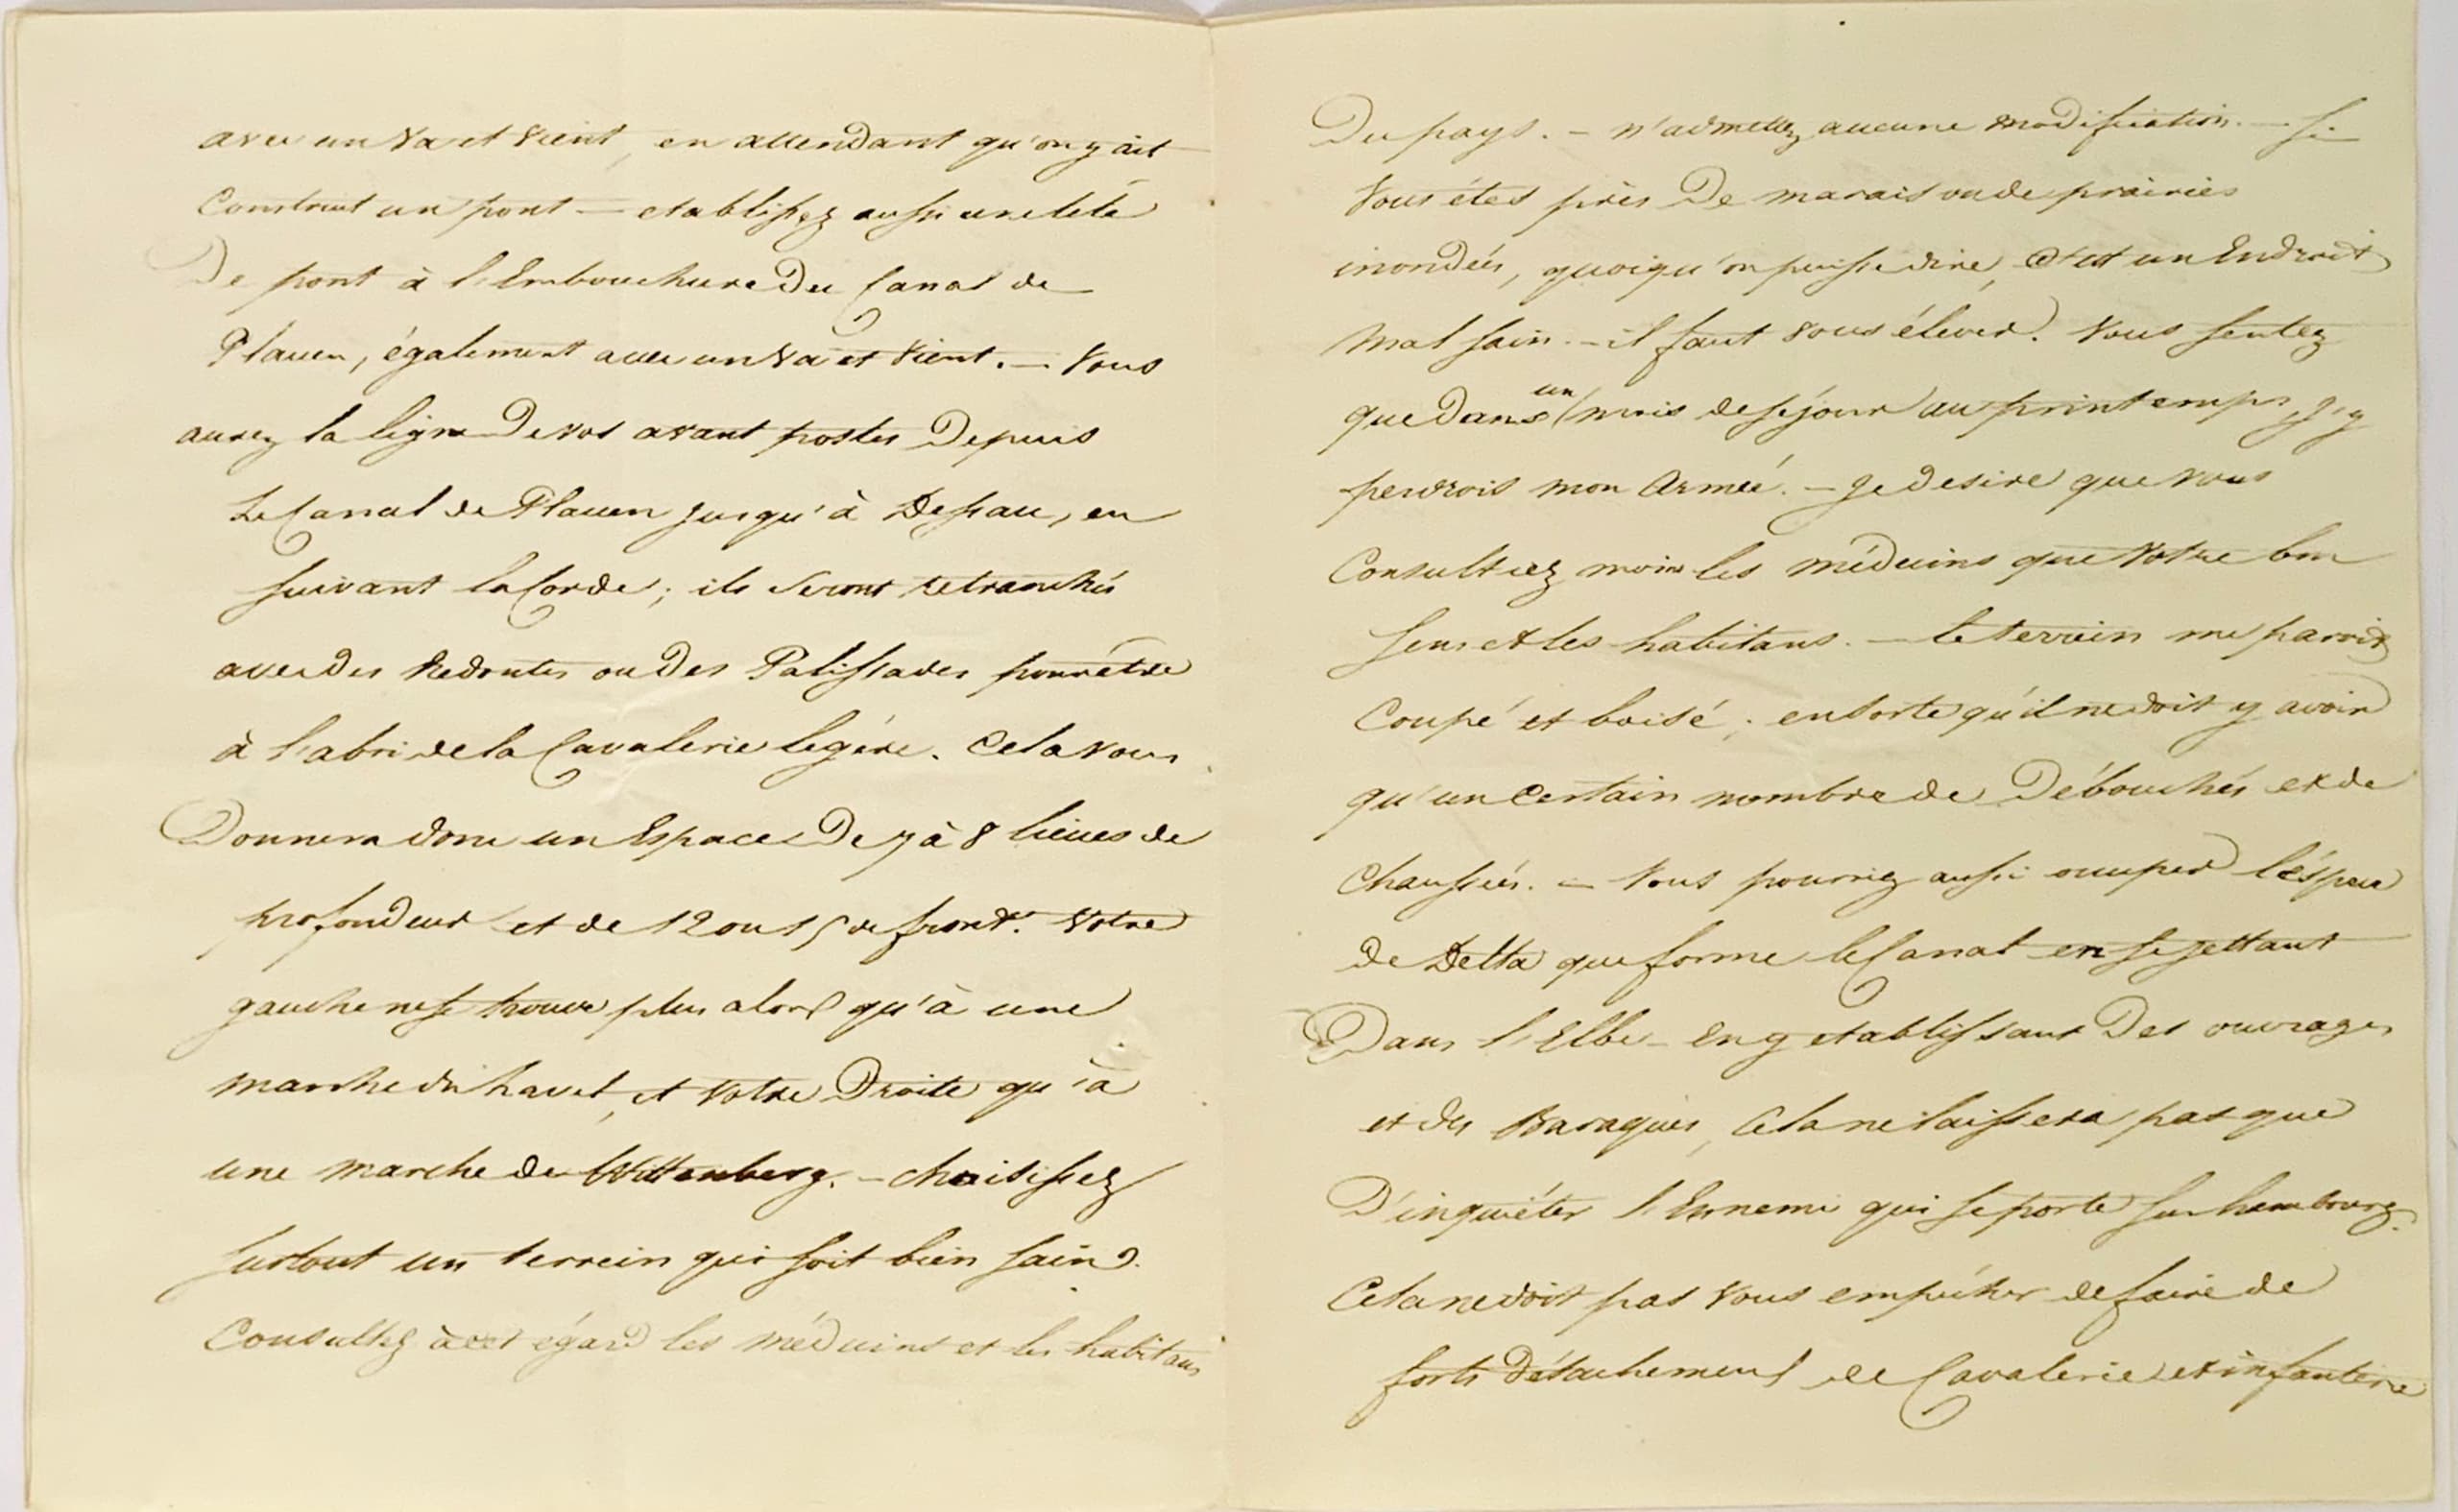 avec un va et vient, en attendant qu'on y ait
Construit un pont — etablissez aussi une tête
De pont à l'Embouchure Du Canal de
Plauen, également avec un va et vient. — Vous
aurez la ligne De vos avant postes Depuis
Le Canal de Plauen jusqu'à Dessau, en
suivant la Corde; ils seront retranchés
avec Des Redoutes ou Des Palissades pour être
à l'abri de la Cavalerie legére. Cela vous
Donnera donc un Espace De 7 à 8 lieues de
profondeur et de 12 ou 15 de front. Votre
gauche ne se trouve plus alors qu'à une
marche du havel, et votre Droite qu'à
une marche de Wittenberg. — choisissez
surtout un terrein qui soit bien sain.
Consultez à cet égard les médecins et les habitans
Du pays. — n'admettez aucune modification. — Si
Vous étes près De marais ou de prairies
inondées, quoiqu'on puisse dire, C'est un Endroit
mal sain. — il faut vous élever. Vous sentez
que Dans un mois de séjour au printemps, j'y
perdrois mon Armée. — Je desire que vous
Consultiez moins les médecins que votre bon
sens et les habitans. — le terrein me paroit
Coupé et boisé; ensorte qu'il ne doit y avoir
qu'un Certain nombre de Débouchés et de
Chaussées. — Vous pourriez aussi occuper l'éspece
de Delta que forme le Canal en se jettant
Dans l'Elbe — En y etablissant Des ouvrages
et des Baraques, Cela ne laissera pas que
D'inquiéter l'Ennemi qui se porte sur hambourg.
Cela ne doit pas vous empêcher de faire de
forts Détachemens de Cavalerie et infanterie